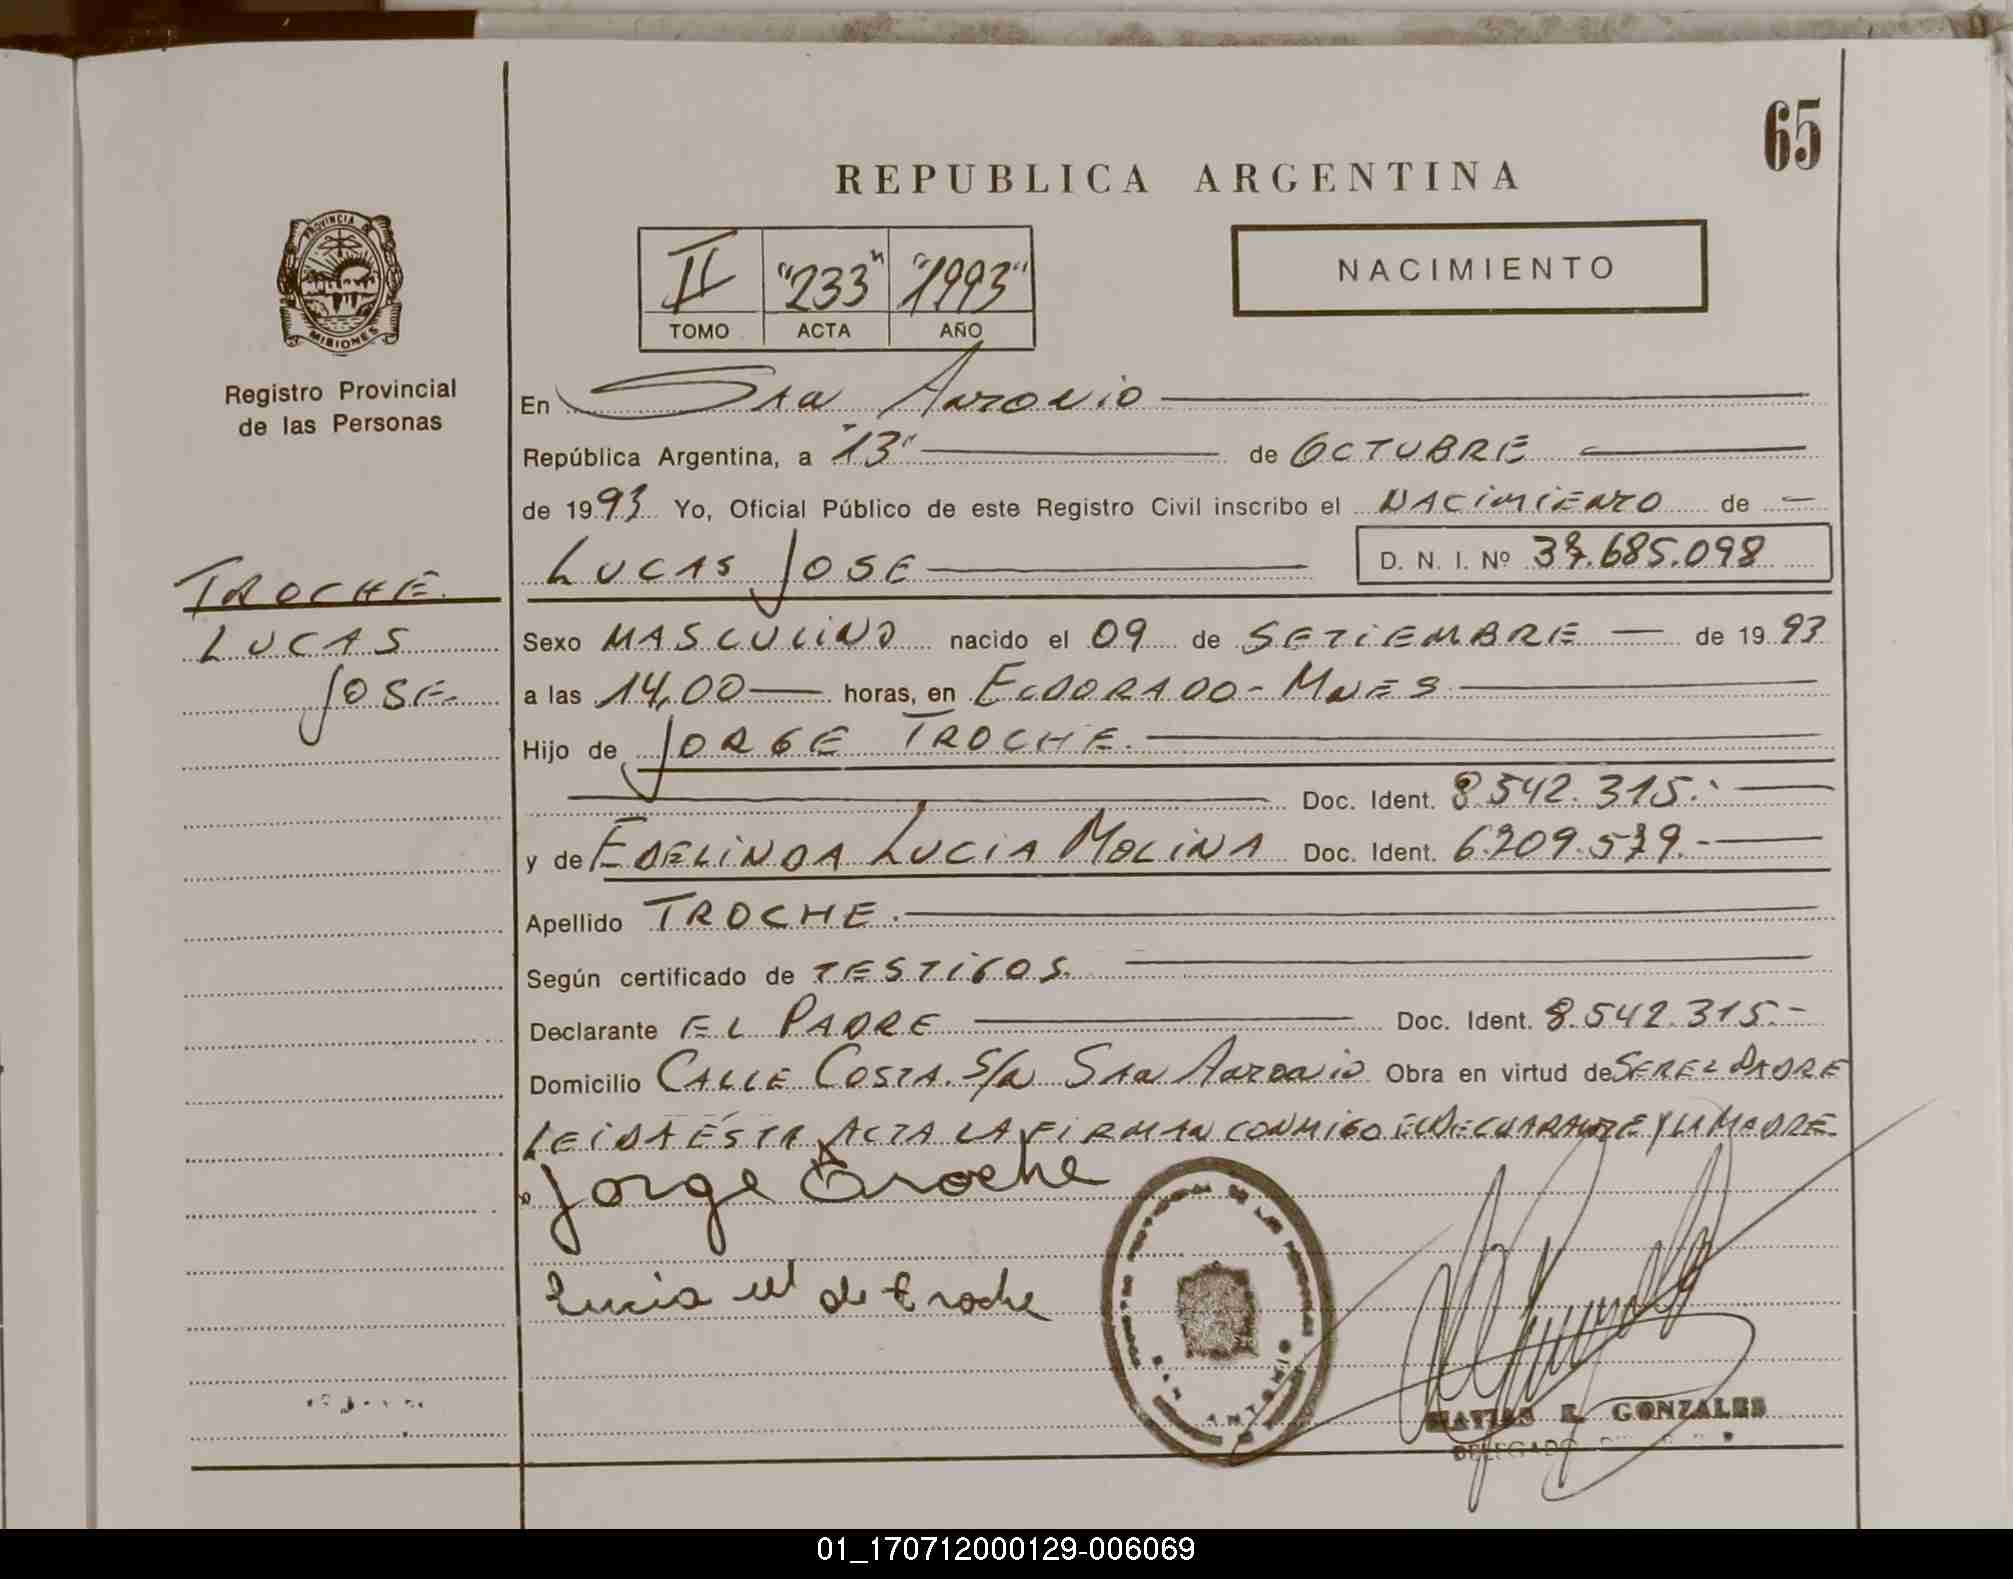 65
REPUBLICA ARGENTINA
PROVINCIA DE
MISIONES
Registro Provincial
de las Personas
II "233" "1993"
TOMO ACTA AÑO
NACIMIENTO
En San Antonio
República Argentina, a "13" de OCTUBRE
de 1993 Yo, Oficial Público de este Registro Civil inscribo el NACIMIENTO de
LUCAS JOSE D. N. I. Nº .685.098
TROCHE
LUCAS
JOSE
Sexo MASCULINO nacido el 09 de SETIEMBRE de 1993
a las 14,00 horas, en ELDORADO - MNES
Hijo de JORGE TROCHE.
Doc. Ident. 8.542.315.-
y de EDELINDA LUCIA MOLINA Doc. Ident.
Apellido TROCHE.
Según certificado de TESTIGOS.
Declarante EL PADRE Doc. Ident. 8.542.315.-
Domicilio CALLE COSTA. S/n San Antonio Obra en virtud de SER EL PADRE
LEIDA ÉSTA ACTA LA FIRMAN CONMIGO EL DECLARANTE Y LA MADRE.
Jorge Troche
Lucia M de Troche
MATIAS R. GONZALES
DELEGADO
01_170712000129-006069